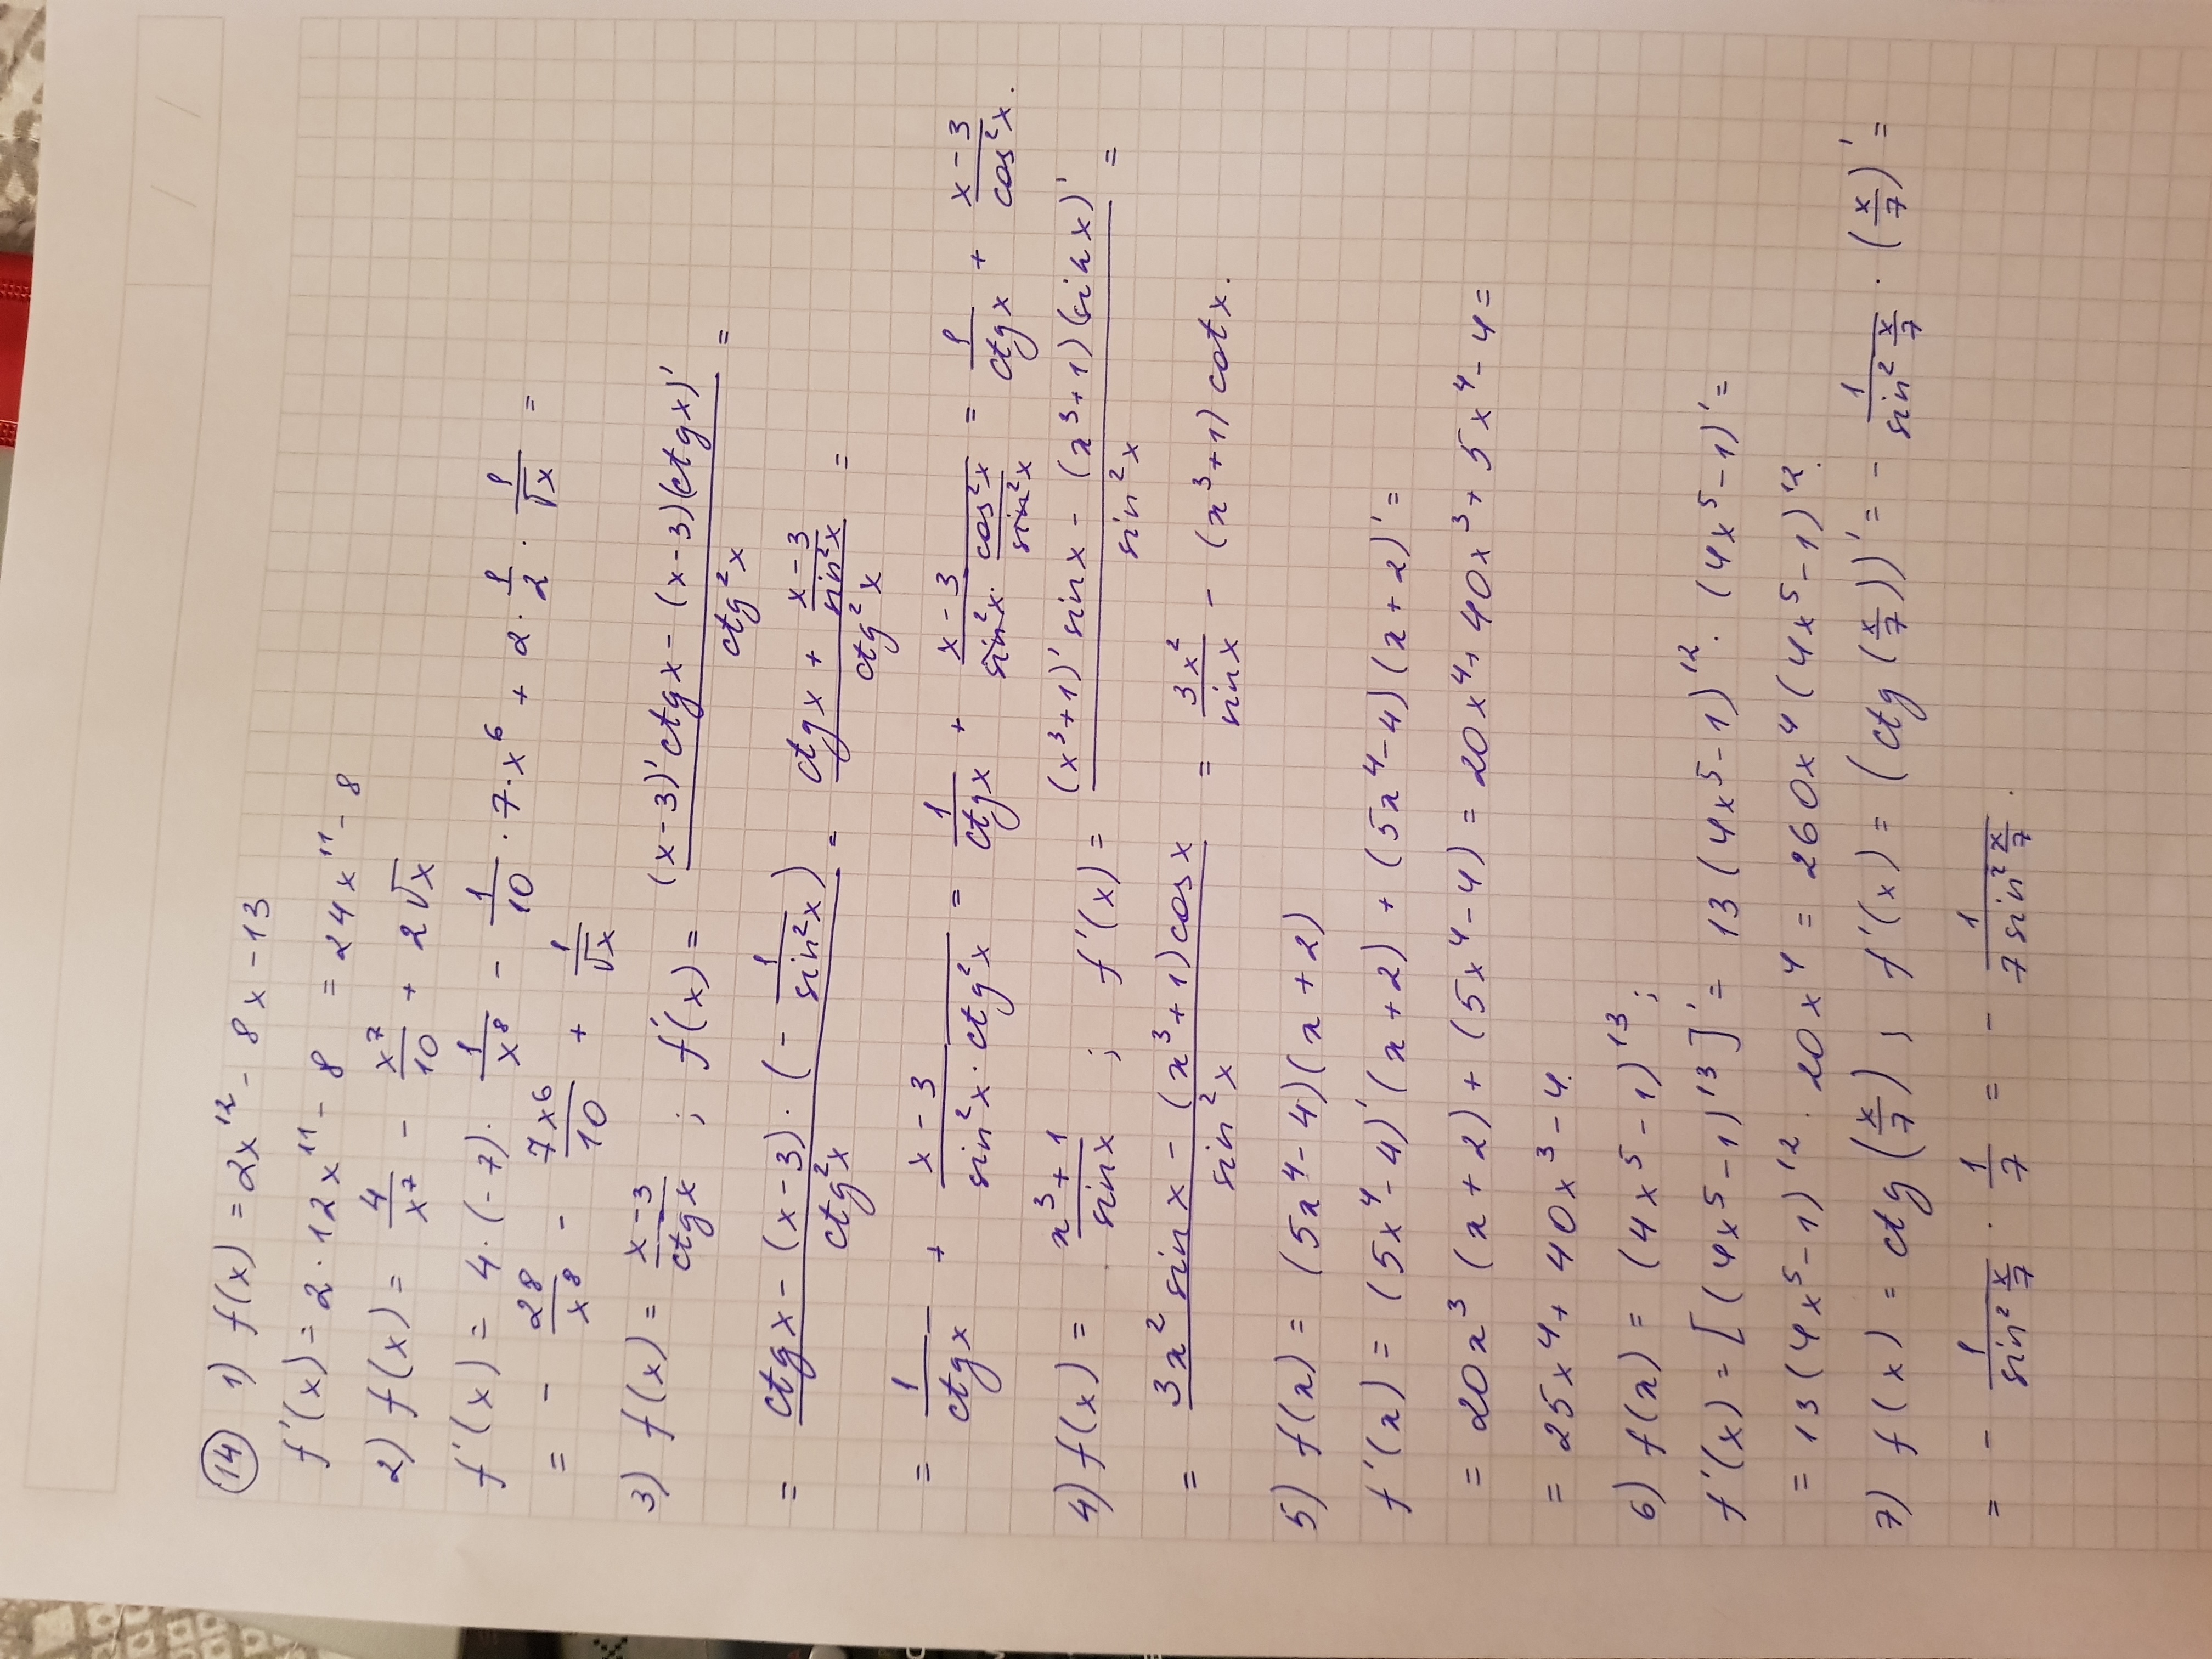 (14) 1) f(x) = 2x¹² - 8x - 13
f'(x) = 2 · 12x¹¹ - 8 = 24x¹¹ - 8
2) f(x) = 4/x⁷ - x⁷/10 + 2√x
f'(x) = 4 · (-7) · 1/x⁸ - 1/10 · 7 · x⁶ + 2 · 1/2 · 1/√x =
= - 28/x⁸ - 7x⁶/10 + 1/√x
3) f(x) = (x-3)/(ctgx) ; f'(x) = ((x-3)'ctgx - (x-3)(ctgx)')/(ctg²x) =
= (ctgx - (x-3) · (- 1/sin²x))/(ctg²x) = (ctgx + (x-3)/(sin²x))/(ctg²x) =
= 1/(ctgx) + (x-3)/(sin²x · ctg²x) = 1/(ctgx) + (x-3)/(sin²x · cos²x/sin²x) = 1/(ctgx) + (x-3)/(cos²x).
4) f(x) = (x³+1)/(sinx) ; f'(x) = ((x³+1)'sinx - (x³+1)(sinx)')/(sin²x) =
= (3x² sinx - (x³+1)cosx)/(sin²x) = 3x²/(sinx) - (x³+1) cotx.
5) f(x) = (5x⁴-4)(x+2)
f'(x) = (5x⁴-4)'(x+2) + (5x⁴-4)(x+2)' =
= 20x³(x+2) + (5x⁴-4) = 20x⁴ + 40x³ + 5x⁴ - 4 =
= 25x⁴ + 40x³ - 4.
6) f(x) = (4x⁵-1)¹³ ;
f'(x) = [(4x⁵-1)¹³]' = 13(4x⁵-1)¹² · (4x⁵-1)' =
= 13(4x⁵-1)¹² · 20x⁴ = 260x⁴(4x⁵-1)¹².
7) f(x) = ctg(x/7) ; f'(x) = (ctg(x/7))' = - 1/(sin² x/7) · (x/7)' =
= - 1/(sin² x/7) · 1/7 = - 1/(7sin² x/7).